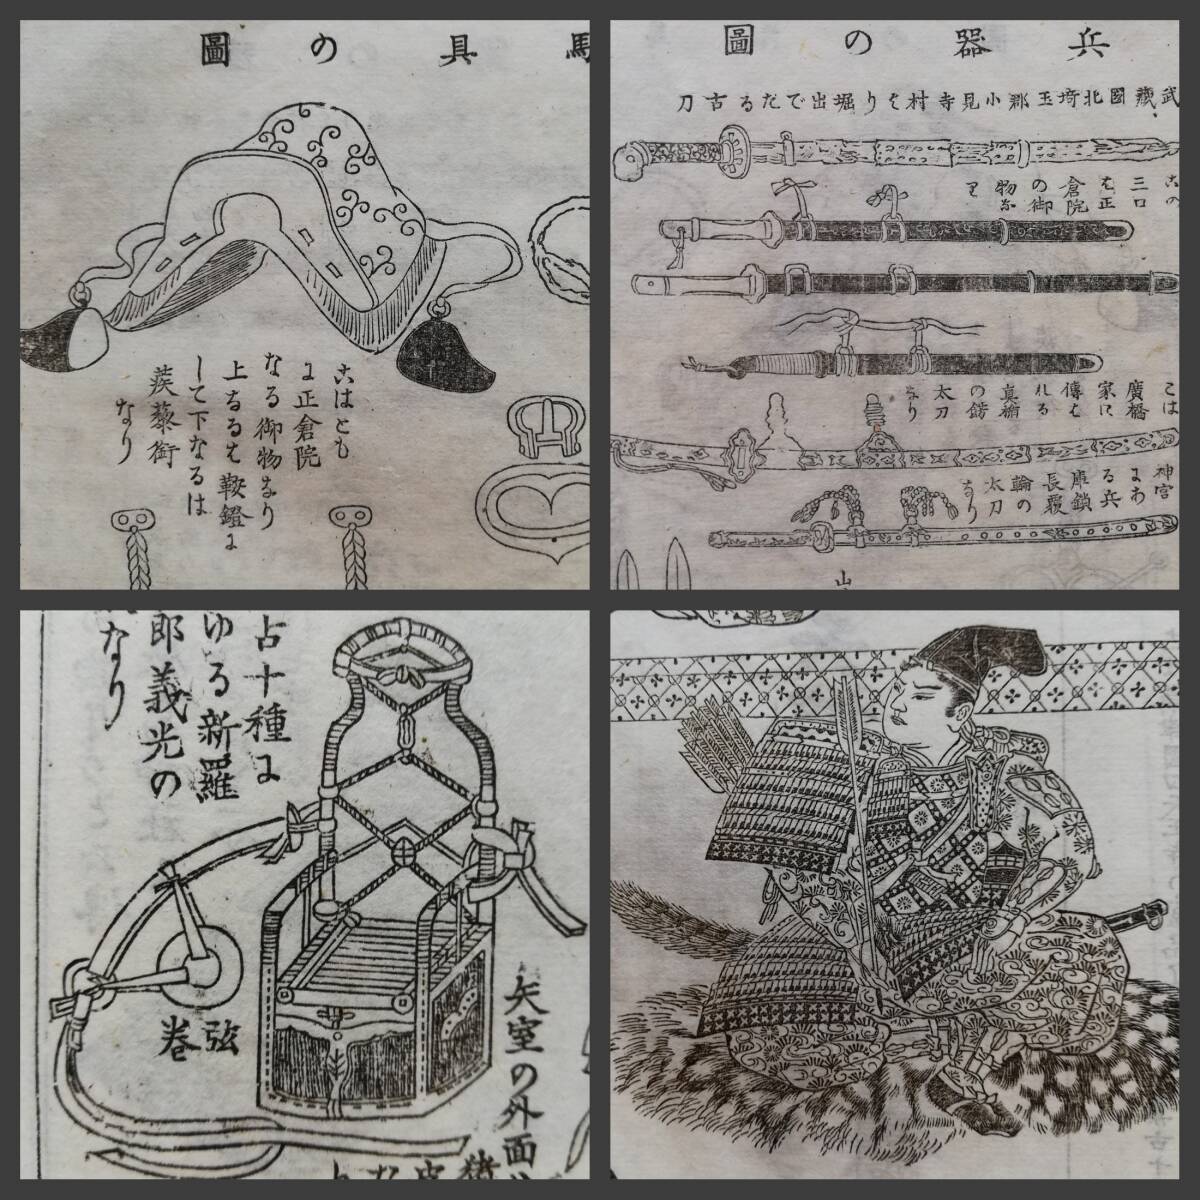 馬具の圖
こはとも
に正倉院
なる御物なり
上なるは鞍鐙に
して下なるは
蒺藜銜
なり
兵器の圖
武藏國北埼玉郡小見寺村より堀出でたる古刀
この
三口
は正
倉院
の御
物な
り
こは
廣橋
家に
傳は
れる
の餝
太刀
なり
神宮
にあ
る兵
庫鎖
長覆
輪の
太刀
なり
山
古十種に
ゆる新羅
郎義光の
なり
弦
巻
矢室の外面